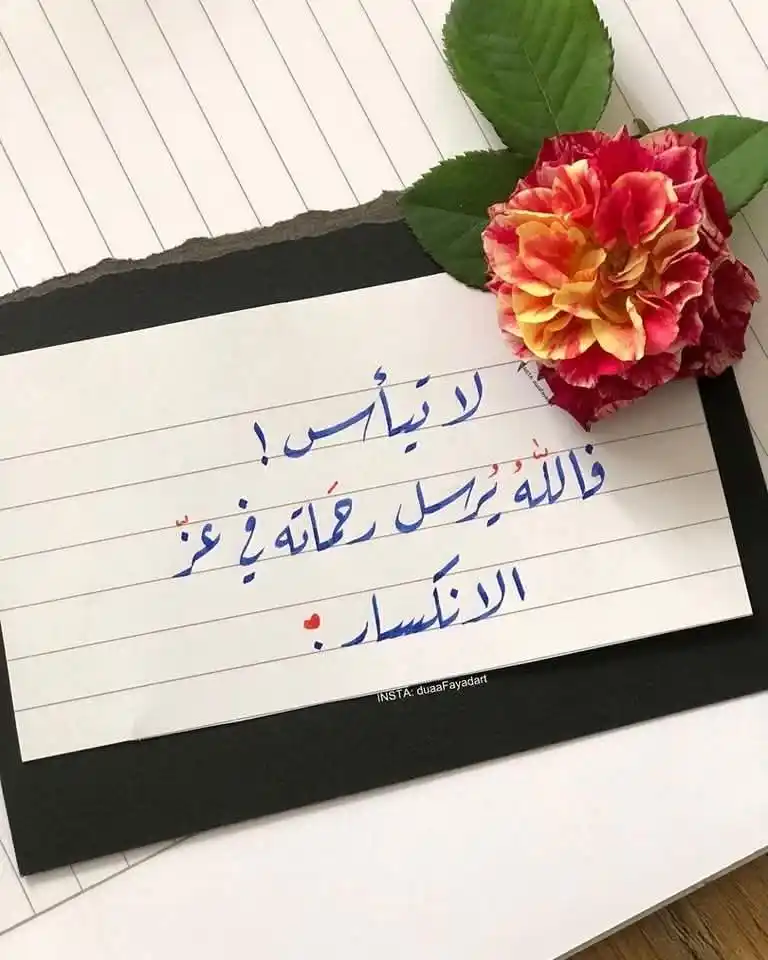 لا تيأس !
فاللّٰهُ يُرسل رحَماته في عزّ
الانكسار .
INSTA: duaaFayadart